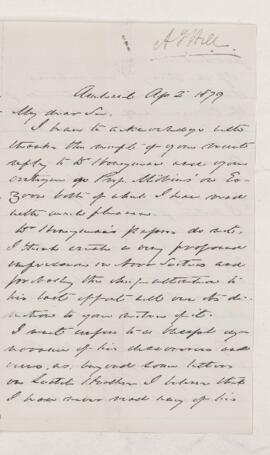 A G Hill
Amherst Ap 2 1879
My dear Sir
I have to acknowledge with
thanks the receipt of your recent
reply to Dr Honeyman and your
critique on Prof. Möbius on Eo-
zoon both of which I have read
with much pleasure.
Dr Honeyman's papers do not
I think create a very profound
impression in Nova Scotia and
probably the chief attention to
his last effort will owe its
to your notice of it.
I must confess to a
of his discoveries and
views, as, beyond some letters
on I believe that
I have never read any of his